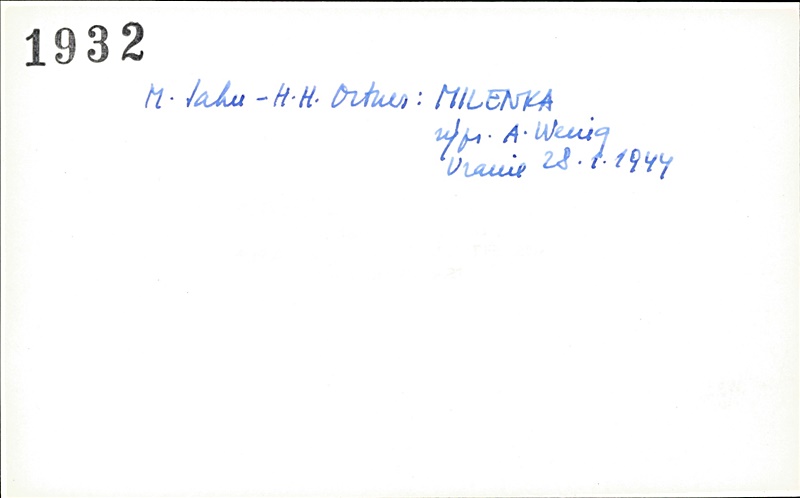 1932
M. Jahn - H.H. Ortner: MILENKA
v/pr. A. Wenig
Uranie 28.1.1944